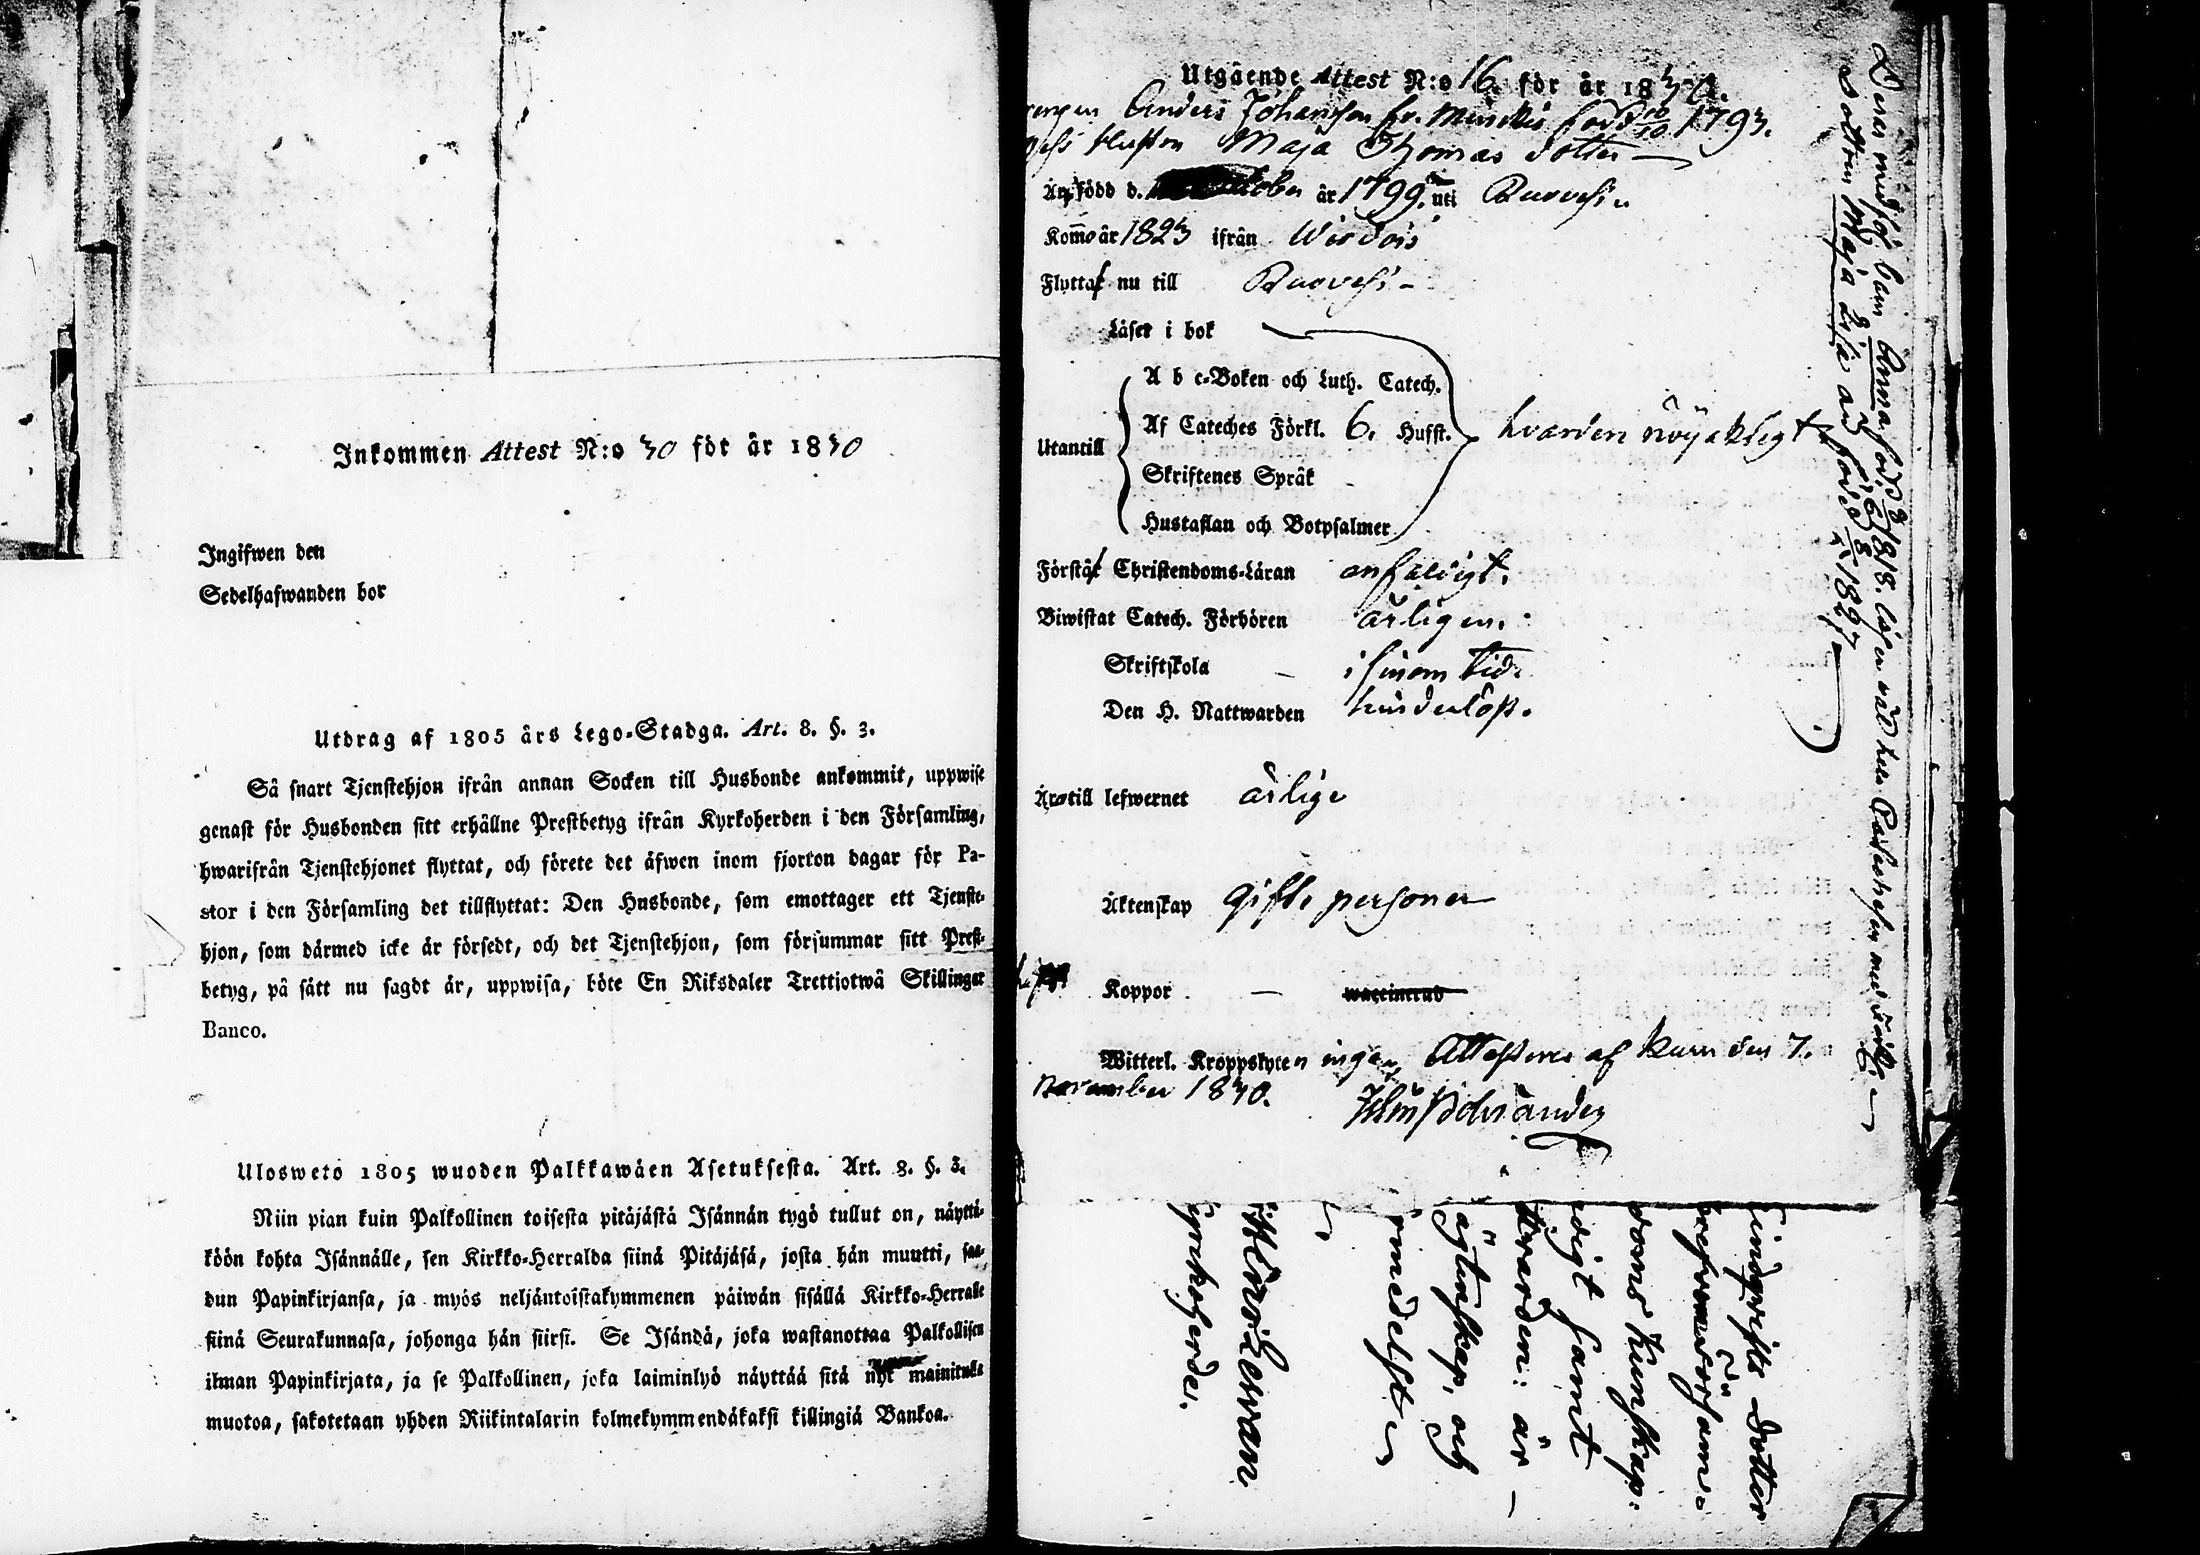 Inkommen Attest N:o 30 för år 1830
Ingifwen den
Sedelhafwanden bor
Utdrag af 1805 års Lego-Stadga. Art. 8. §. 3.
Så snart Tjenstehjon ifrån annan Socken till Husbonde ankommit, uppwise
genast för Husbonden sitt erhållne Prestbetyg ifrån Kyrkoherden i den Församling,
hwarifrån Tjenstehjonet flyttat, och förete det äfwen inom fjorton dagar för Pa-
stor i den Församling det tillflyttat: Den Husbonde, som emottager ett Tjenste-
hjon, som därmed icke är försedt, och det Tjenstehjon, som försummar sitt Prest-
betyg, på sätt nu sagdt är, uppwisa, böte En Riksdaler Trettiotwå Skillingar
Banco.
Ulosweto 1805 wuoden Palkkawäen Asetuksesta. Art. 8. §. 3.
Niin pian kuin Palkollinen toisesta pitäjästä Isännän tygö tullut on, näyttä-
köön kohta Isännälle, sen Kirkko-Herralda siinä Pitäjäsä, josta hän muutti, saa-
dun Papinkirjansa, ja myös neljäntoistakymmenen päiwän sisällä Kirkko-Herralle
siinä Seurakunnasa, johonga hän siirsi. Se Isändä, joka wastanottaa Palkollisen
ilman Papinkirjata, ja se Palkollinen, joka laiminlyö näyttää sitä nyt mainitulla
muotoa, sakotetaan yhden Riikintalarin kolmekymmendäkaksi killingiä Bankoa.
Utgående Attest N:o 16. för år 1830.
Anders Johansson fr. född 10/10 1793.
hustron Maja Thomas dotter
Är född d. October år 1799. uti Ruovesi
Kom år 1823 ifrån Wirdois
Flyttar nu till Ruovesi
Läser i bok
Utantill
A b c-Boken och Luth. Catech.
Af Cateches Förkl. 6. Hufst.
Skriftenes Språk
Hustaflan och Botpsalmer
hvardera nöyaktigt
Förstår Christendoms-Läran enfaldigt.
Biwistat Catech. Förhören årligen.
Skriftskola i sinom tid.
Den H. Nattwarden hinderlöst.
Är till lefwernet ärlige
Äktenskap gifte personer
Koppor waccinerad
Witterl. Kroppslyten ingen, Attesteras af Kuru den 7.
November 1830.
Deras medföl. barn Anna född 8/6 1818. läser väl hela Catechesen med
dottren Maja Lisa är född 8 1827
dotter
doms kunskap:
digt samt
är
ägtenskap, och
medelst